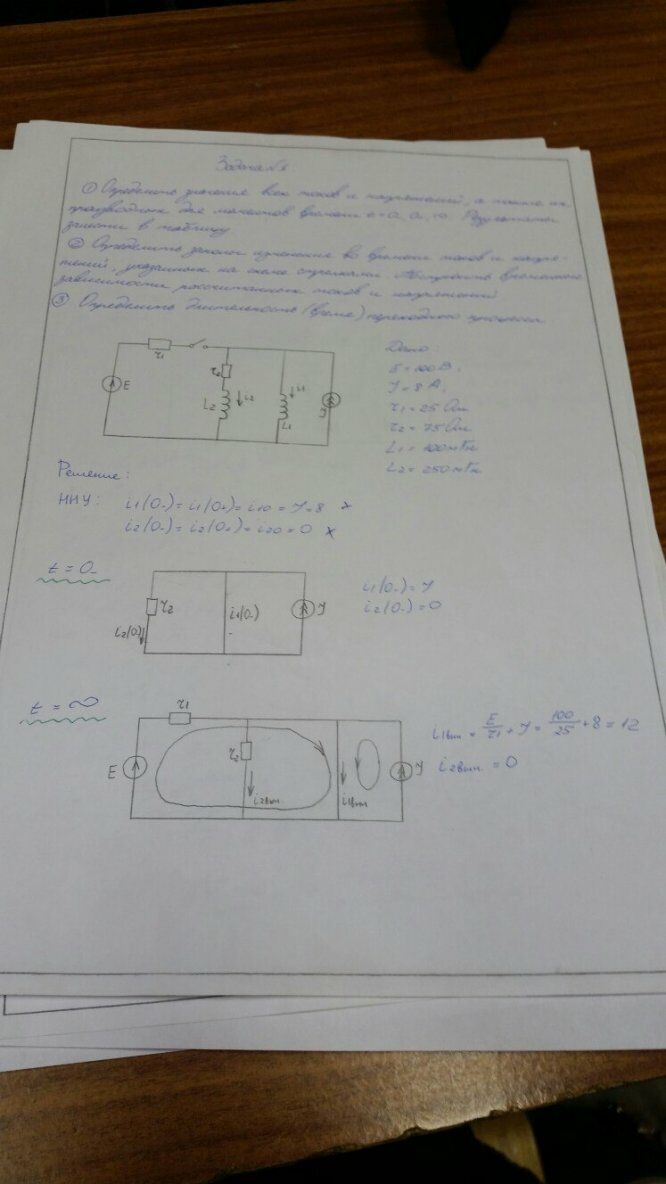 Задача №6
① Определить значения всех токов и напряжений, а также их
производных для моментов времени t=0-, 0+, ∞. Результаты
занести в таблицу
② Определить законы изменения во времени токов и напря-
жений, указанных на схеме стрелками. Построить временные
зависимости рассчитанных токов и напряжений
③ Определить длительность (время) переходного процесса.
r1
E
r2
L2
i2
L1
i1
J
Дано:
E = 100 В,
J = 8 А,
r1 = 25 Ом
r2 = 75 Ом
L1 = 100 мГн
L2 = 250 мГн
Решение:
ННУ: i1(0-) = i1(0+) = i10 = J = 8
i2(0-) = i2(0+) = i20 = 0
t = 0-
r2
i2(0-)
i1(0-)
J
i1(0-) = J
i2(0-) = 0
t = ∞
r1
E
r2
i2вын
i1вын
J
i1вын = E/r1 + J = 100/25 + 8 = 12
i2вын = 0